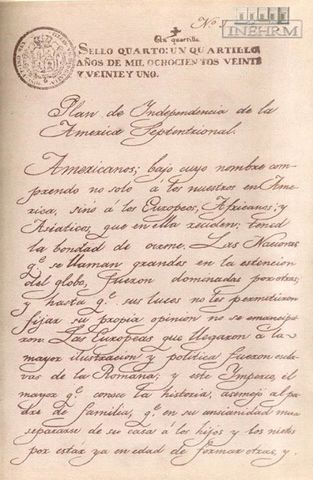 INEHRM
Un quartillo
SELLO QUARTO: UN QUARTILLO,
AÑOS DE MIL OCHOCIENTOS VEINTE
Y VEINTE Y UNO.
Plan de Independencia de la
America Septentrional.
Americanos; bajo cuyo nombre com-
prendo no solo a los nuestros en Ame-
rica, sinó á los Europeos, Africanos; y
Asiaticos, que en ella residen: tened
la bondad de oirme. Las Naciones
q.e se llaman grandes en la estencion
del globo, fueron dominadas por otras;
y hasta q.e sus luces no les permitieron
fijar su propia opinion no se emancipa-
ron. Las Europeas que llegaron á la
mayor ilustracion y politica fueron escla-
vas de la Romana; y este Ymperio, el
mayor q.e conoce la historia, asemejo al pa-
dre de familia, q.e en su ancianidad mira
separarse de su casa á los hijos y los nietos
por estár ya en edad de formar otras, y